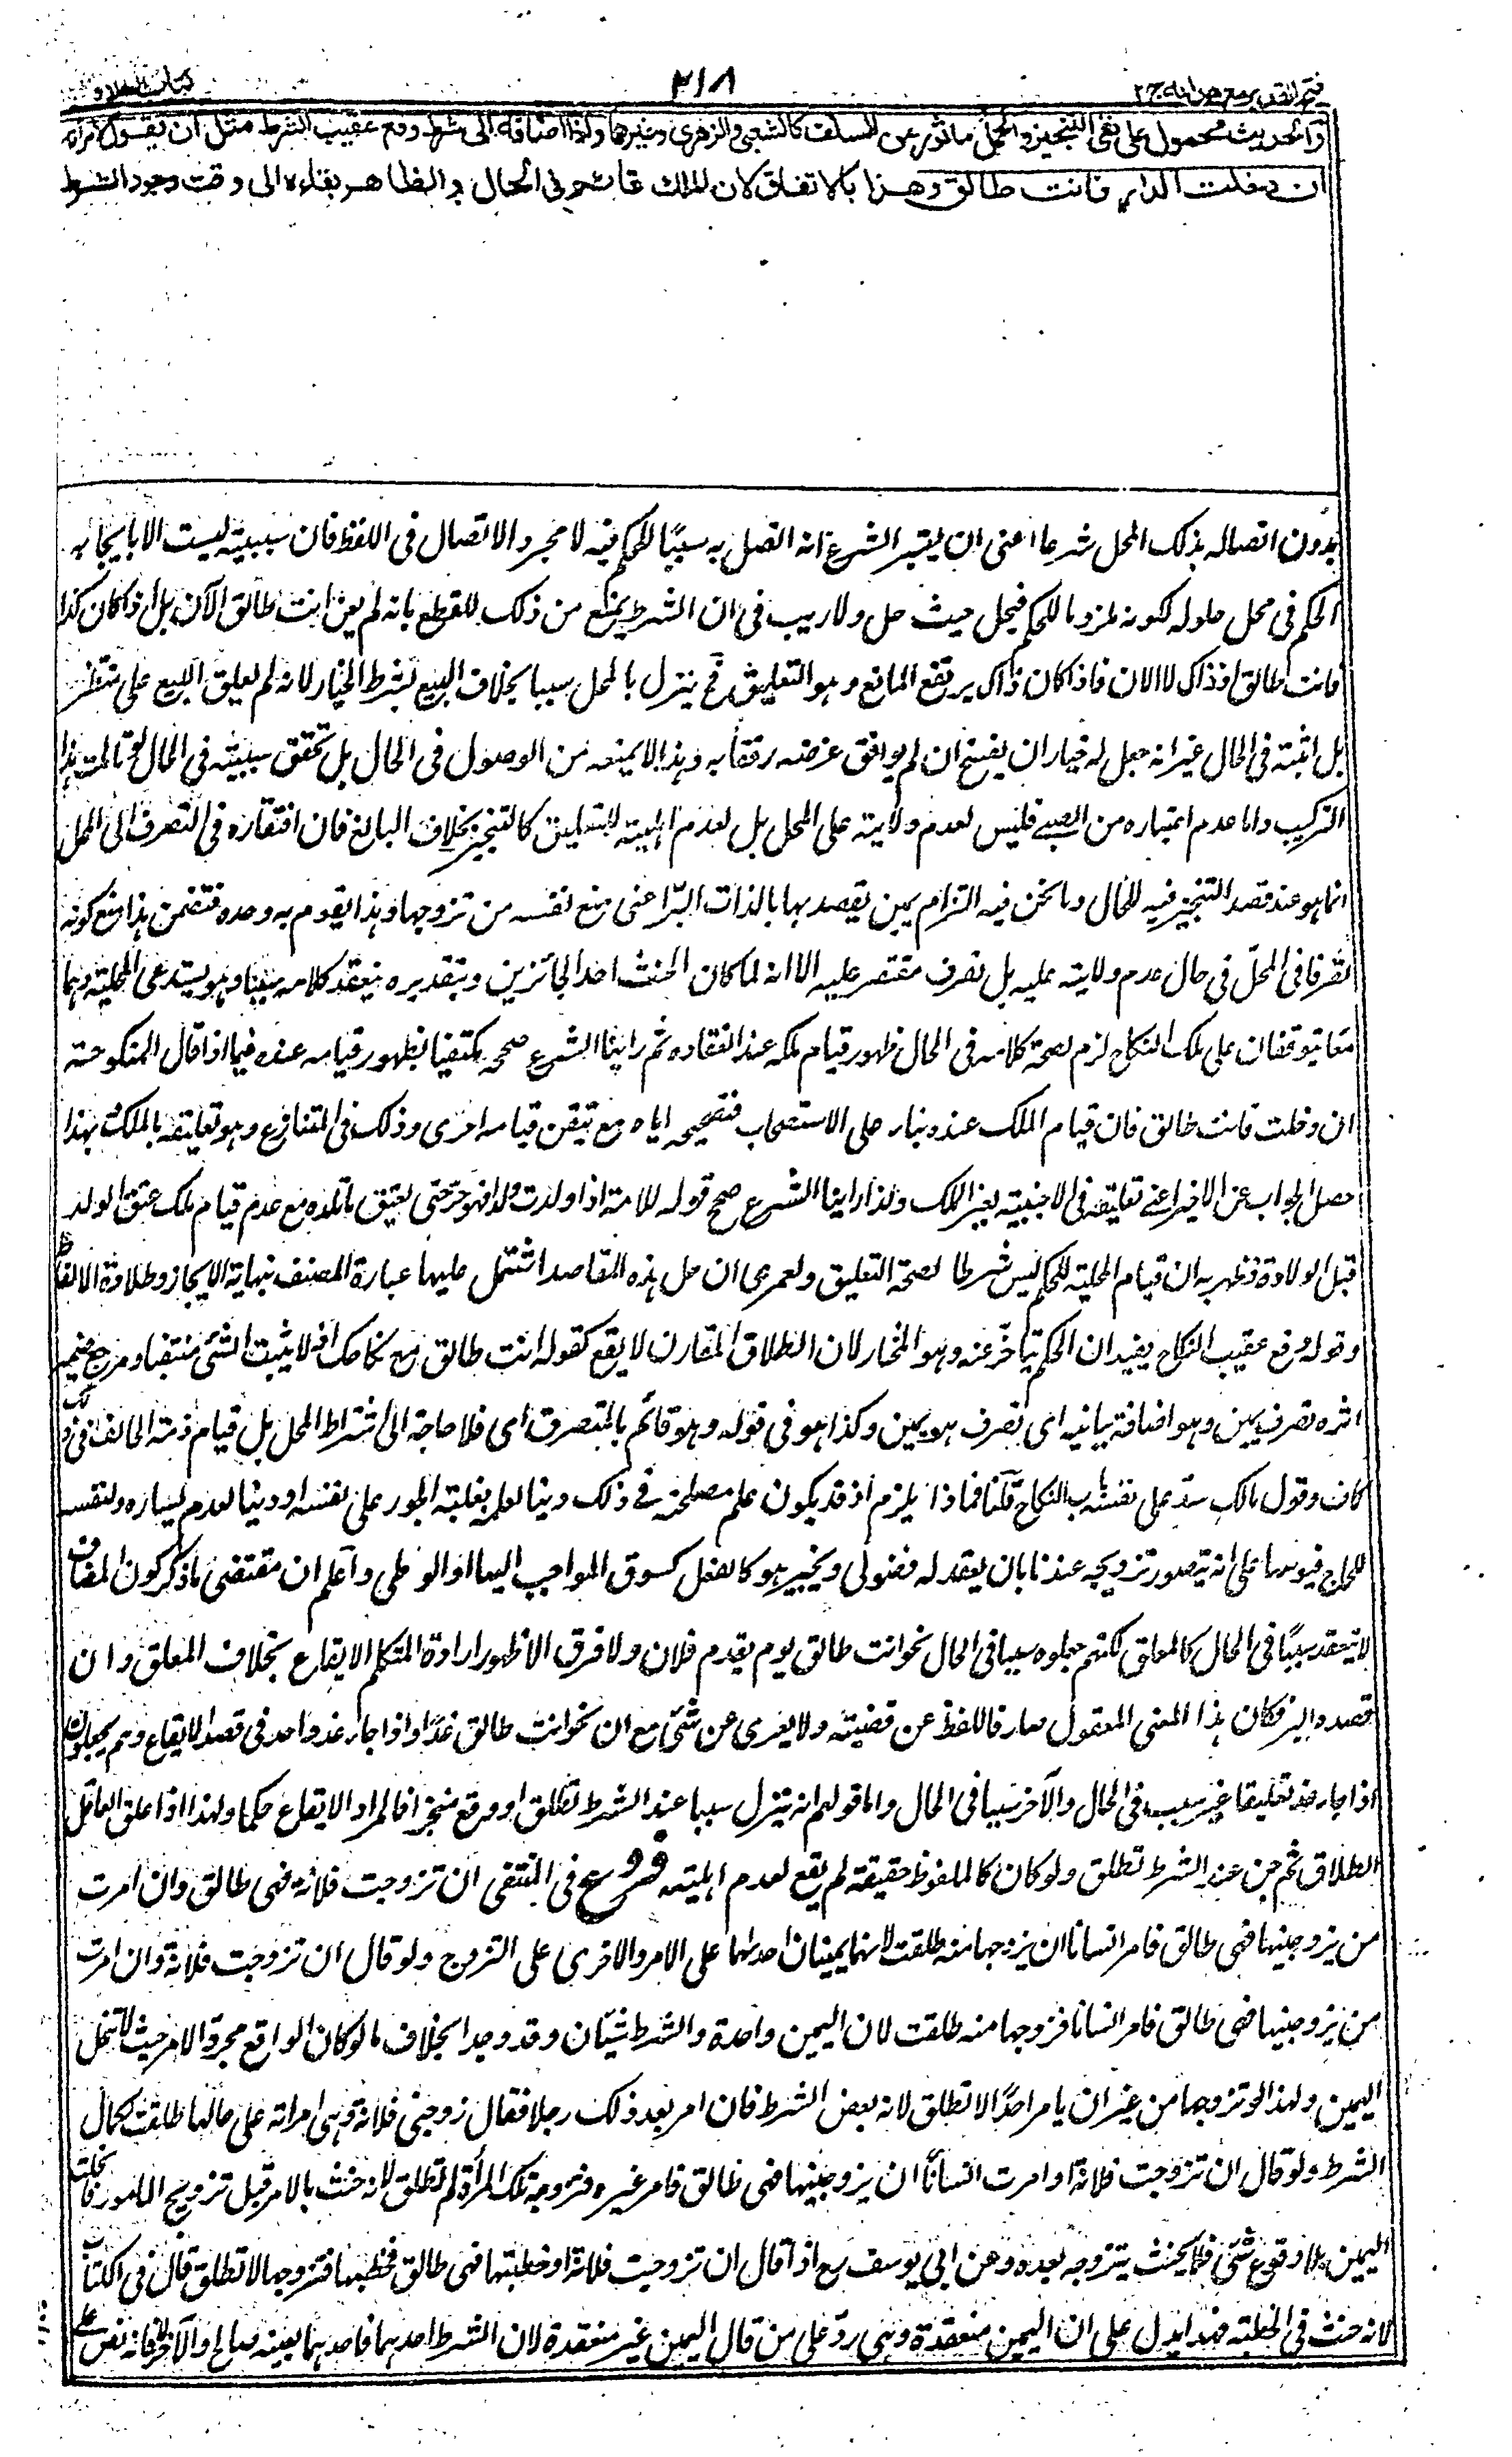 فتح القدیر مع هدایه ج ۲
۲۱۸
کتاب الطلاق
والحدیث محمول علی نفی التنجیز والحمل ماثور عن السلف کالشعبی والزهری وغیرهما واذا اضافه الی شرط وقع عقیب الشرط مثل ان یقول لامرأته
ان دخلت الدار فانت طالق وهذا بالاتفاق لان الملک قائم فی الحال والظاهر بقاءه الی وقت وجود الشرط
بدون اتصاله بذلک المحل شرعا اعنی ان یعتبر الشرع انه اتصل به سببًا للحکم فیه لا مجرد الاتصال فی اللفظ فان سببیته لیست الا بایجابه
الحکم فی محل حلوله لکونه ملزوما للحکم فیحل حیث حل ولا ریب فی ان الشرط یمنع من ذلک للقطع بانه لم یعن انت طالق الآن بل اذا کان کذا
فانت طالق اذ ذاک لا الان فاذا کان ذاک یرتفع المانع وهو التعلیق فح ینزل بالمحل سببا بخلاف البیع بشرط الخیار لانه لم یعلق البیع علی منتظر
بل اثبته فی الحال غیر انه جعل له خیار ان یفسخ ان لم یوافق غرضه رفقا به وهذا لا یمنعه من الوصول فی الحال بل تحقق سببیته فی الحال لو تالمت هذا
الترکیب واما عدم اعتباره من الصبی فلیس لعدم ولایته علی المحل بل لعدم اهلیته للتعلیق کالتنجیز بخلاف البالغ فان افتقاره فی التصرف الی المحل
انما هو عند قصد التنجیز فیه للحال وما نحن فیه التزام یمین یقصد بها بالذات البرّ اعنی منع نفسه من تزوجها وهذا یقوم به وحده فتضمن هذا منع کونه
تصرفا فی المحلّ فی حال عدم ولایته علیه بل تصرف مقتصر علیه الا انه لما کان الحنث احد الجائزین وبتقدیره ینعقد کلامه سببا وهو یستدعی المحلیة وهما
مَعًا یتوقفان علی ملک النکاح لزم لصحة کلامه فی الحال ظهور قیام ملکه عند انعقاده ثم راینا الشرع صححه مکتفیا بظهور قیامه عنده فیما اذا قال المنکوحته
ان دخلت فانت طالق فان قیام الملک عنده بناء علی الاستصحاب فتصحیحه ایاه مع تیقن قیامه احری وذلک فی المتنازع وهو تعلیقه بالملک وبهذا
حصل الجواب عن الاخیر اعنی تعلیقه فی الاجنبیة بغیر الملک ولذا راینا الشرع صحح قوله للامة اذا ولدت ولدا فهو حر حتی یعتق ما تلده مع عدم قیام ملک عتق الولد
قبل الولادة فظهر به ان قیام المحلیة للحکم لیس شرطا لصحة التعلیق ولعمری ان حل هذه المقاصد اشتمل علیها عبارة المصنف بنهایة الایجاز وطلاوة الالفاظ
وقوله وقع عقیب النکاح یفید ان الحکم یتأخّر عنه وهو المختار لان الطلاق المقارن لا یقع کقوله انت طالق مع نکاحک اذ لا یثبت الشئ منتفیا ومرجع ضمیر
اثره تصرف یمین وهو اضافة بیانیه ای تصرف هو یمین وکذا هو فی قوله وهو قائم بالمتصرف ای فلا حاجة الی اشتراط المحل بل قیام ذمة الحالف فی ذلک
کاف وقول مالک سدّ علی نفسه باب النکاح قلنا فماذا یلزم اذ قد یکون علم مصلحة فی ذلک دینا لعلمه بغلبة الجور علی نفسه او دنیا لعدم یساره ولنفسه
لحاج فیوسها علی انه یتصور تزویجه عندنا بان یعقد له فضولی ویجیز هو کالفعل کسوق الواجب الیها او الوطی واعلم ان مقتضی ما ذکر کون المضاف
لا ینعقد سببًا فی الحال کالمعلق لکنهم جعلوه سببا فی الحال نحو انت طالق یوم یقدم فلان ولا فرق الا ظهور ارادة المتکلم الایقاع بخلاف المعلق وان
قصده البر فکان هذا المعنی المعقول صارفا للفظ عن قضیته ولا یعری عن شئ مع ان نحو انت طالق غدًا واذا جاء غد واحد فی قصد الایقاع وهم یجعلون
اذا جاء غد تعلیقا غیر سبب فی الحال والآخر سببا فی الحال واما قولهم انه ینزل سببا عند الشرط تطلق او وقع منجزا فالمراد الایقاع حکما ولهذا اذا علق العاقل
الطلاق ثم جن عند الشرط تطلق ولو کان کالملفوظ حقیقة لم یقع لعدم اهلیته فروع فی المنتقی ان تزوجت فلانة فهی طالق وان امرت
من یزوجنیها فهی طالق فامر انسانا ان یزوجها منه طلقت لانهما یمینان احدهما علی الامر والاخری علی التزوج ولو قال ان تزوجت فلانة وان امرت
من یزوجنیها فهی طالق فامر انسانا فزوجها منه طلقت لان الیمین واحدة والشرط شیئان وقد وجدا بخلاف ما لو کان الواقع مجرد الامر حیث لا تنحل
الیمین ولهذا لو تزوجها من غیر ان یامر احدًا لا تطلق لانه بعض الشرط فان امر بعد ذلک رجلا فقال زوجنی فلانة وهی امراته علی حالها طلقت لکمال
الشرط ولو قال ان تزوجت فلانة او امرت انسانًا ان یزوجنیها فهی طالق فامر غیره فزوجه تلک المرأة لم تطلق لانه حنث بالامر قبل تزویج المامور فانحلت
الیمین بلا وقوع شئ فلا یحنث بتزوجه بعده وعن ابی یوسف رح اذا قال ان تزوجت فلانة او خطبتها فهی طالق فخطبها فتزوجها لا تطلق قال فی الکتاب
لانه حنث فی الخطبة فهذا یدل علی ان الیمین منعقدة وهی ردّ علی من قال الیمین غیر منعقدة لان الشرط احدهما فاحدهما بعینه صالح والآخر لا فانه نص علی